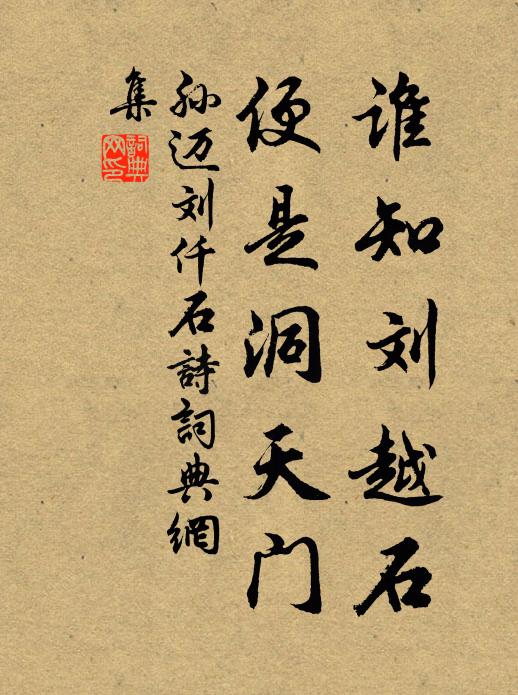 谁知刘越石
便是洞天门
孙迈刘仟石詩詞典網
集
詞典
网印